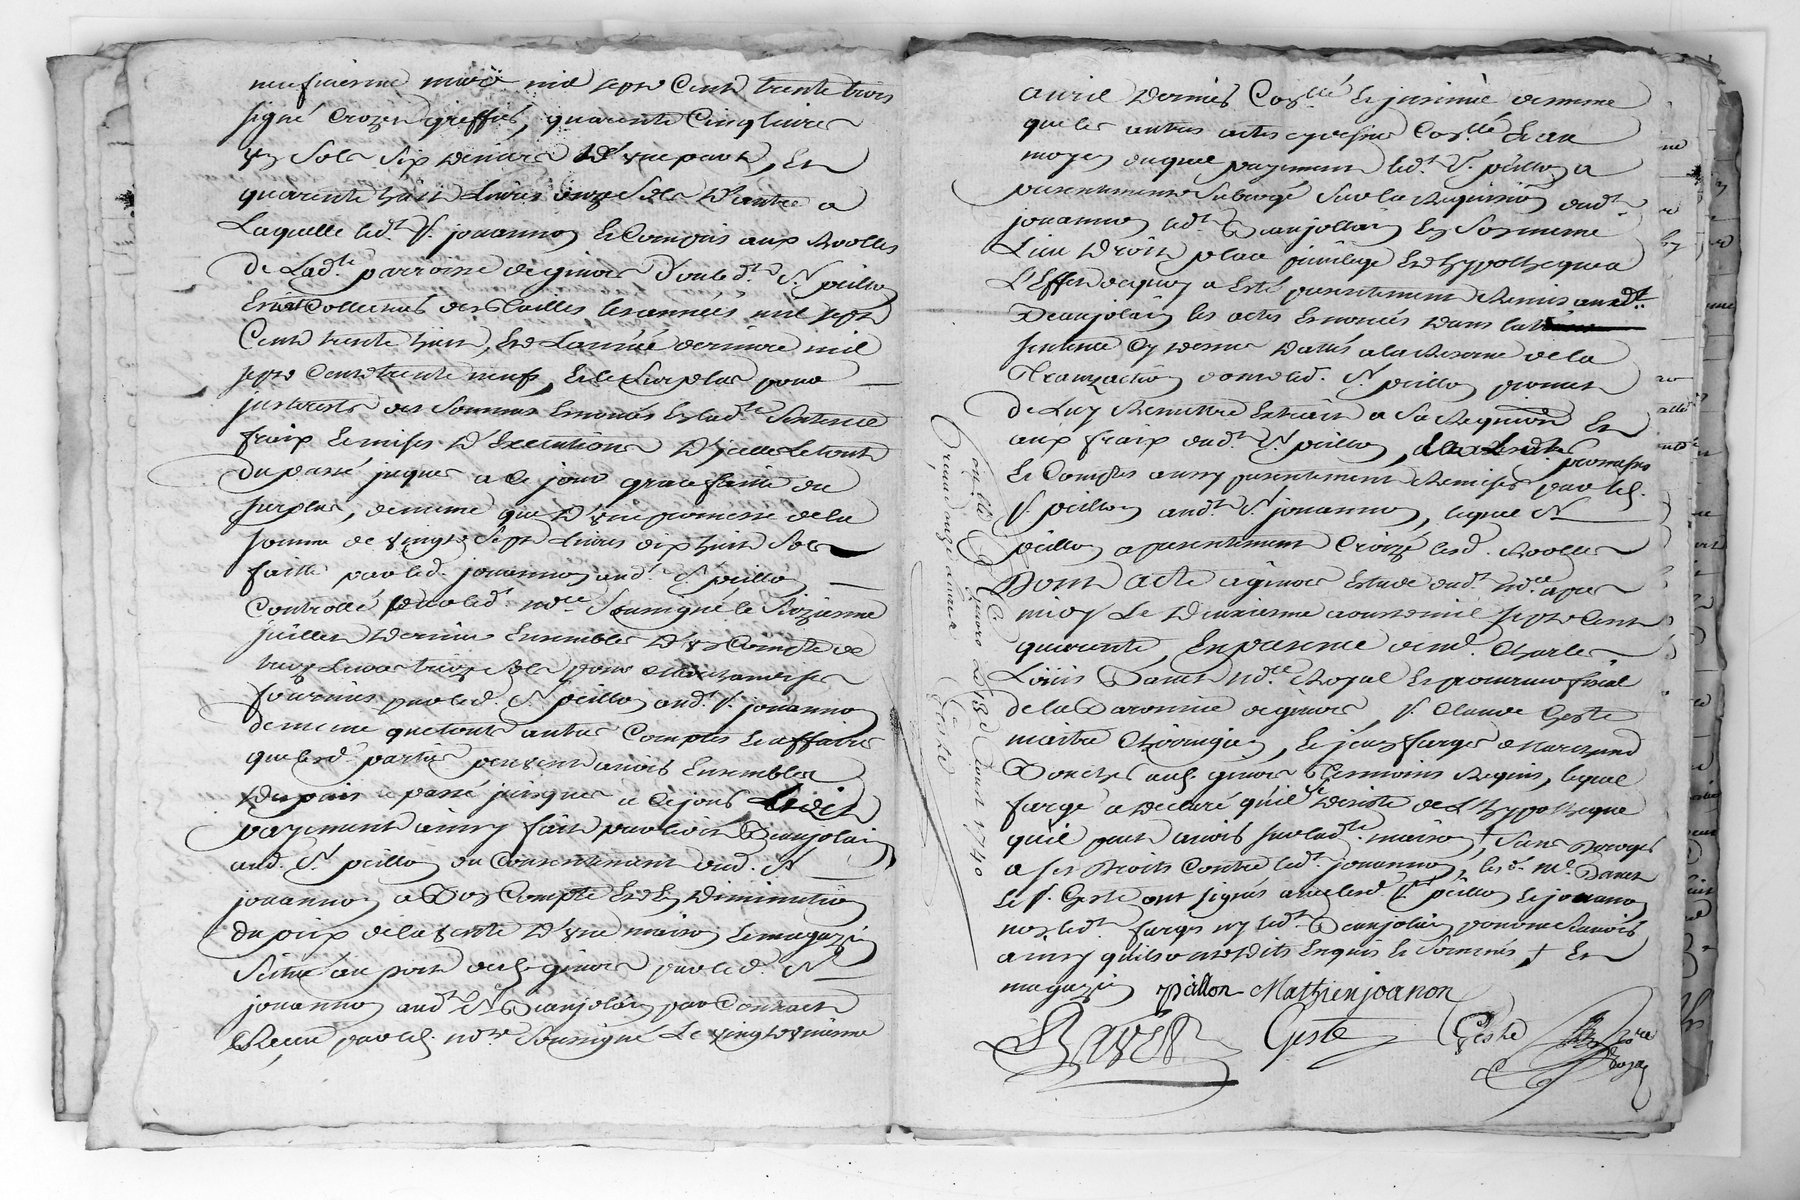 neufvieme may mil sept Cent trente trois
signé Crozer greffier, quarente Cinq livres
un Sols Six deniers d'une part, Et
quarente huit Livres onze Sols D'autre a
Laquelle led.t S.r jouannon Est Compris aux Roolles
De Lad.te parroisse de givors Dont led.t S.r peillon
Estoit Collecteur des Tailles les années mil sept
Cent trente huit, Et L'année derniere mil
sept Cent trente neuf, Et le Surplus pour
jnterests des Sommes Enoncés En lad.te Sentence
fraix Et mises D'Execution D'jcelle Le tout
du passé jusques a Ce jour grace faitte du
surplus, de meme que D'une promesse de la
somme de vingt Sept Livres dix huit Sols
faitte par led. jouannon aud.t S.r peillon
Controllé par led.t no.re Soussigné le Sixzieme
juillet Dernier Ensemble D'un Compte de
treize Livres treize Sols pour Marchandises
fournies par led. S.r peillon aud.t S.r jouannon
de meme que touts autres Comptes Et affaires
que lesd. parties peuvent avoir Ensemble
du passé jusques a Ce jour Ledit
payement ainsy fait par led.t Beaujolain
aud. S.r peillon du Consentement dud. S.r
jouannon a Bon Compte Et En Diminution
du prix de la vente D'une maison Et magazin
Scitué au port dud. givors par led. S.r
jouannon aud.t S.r Beaujolain par Contract
Reçeu par led. no.re Soussigné Le vingt unieme
avril Dernier Con.llé Et jnsinué de meme
que les autres actes cy dessus Con.llé Et au
moyen duquel payement led.t S.r peillon a
presentement Subrogé Sur la Requisition dud.t
jouannon led.t Beaujollain En Son meme
Lieu Droit place privilege Et hypotheque a
L'Effet de quoy a Esté presentement Remis aud.t
Beaujolain les actes Enoncés Dans la
sentence Cy dessus Dattés a la Reserve de la
Transaction dont led. S.r peillon promet
De Luy Remettre Extrait a Sa Requisition Et
aux fraix dud.t S.r peillon, promesses
Et Comptes aussy presentement Remises par led.
S.r peillon aud.t S.r jouannon, lequel S.r
peillon a presentement Croizé lesd. Roolles
Dont acte a givors Estude dud.t no.re apres
midy Le Deuxieme aoust mil sept Cent
quarente, En presence de m.e Charles
Louis Bavet no.re Royal Et procureur fiscal
de la Baronnie de givors, S.r Claude Geste
maitre Chirurgien, Et jean farges Marchand
Boucher aud. givors Temoins Requis, lequel
farge a Declaré qu'il se Desiste de L'hypotheque
qu'il peut avoir sur lad.te maison +, Sans Deroger
a ses Droits Contre led.t jouannon, lesd. m.e Bavet
Et S.r Geste ont signés avec lesd. S.r peillon Et jouannon
non led.t farges ny led.t Beaujolain pour ne Scavoir
ainsy qu'ils ont Dits Enquis Et Sommés + Et
magazin peillon Mathieu joanon
Bavet Geste Geste
Con.llé a Givors Le 13e aoust 1740
Reçu
Geste